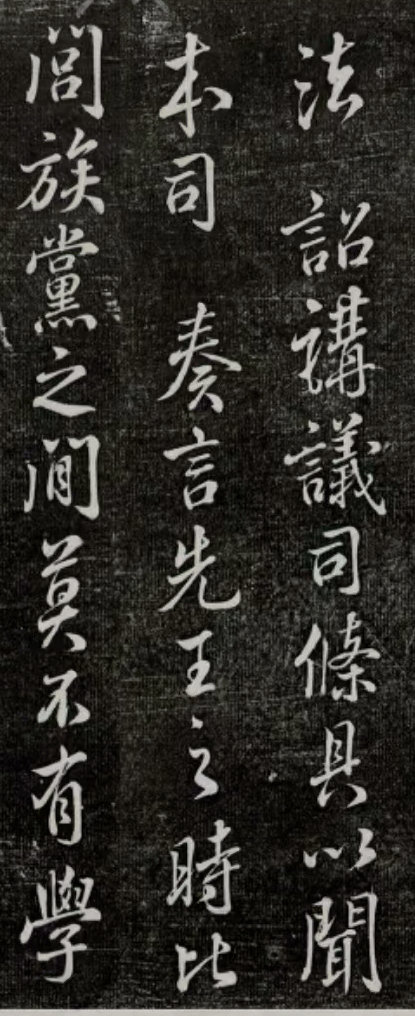 法 詔講議司條具以聞
本司 奏言先王之時比
閭族黨之間莫不有學